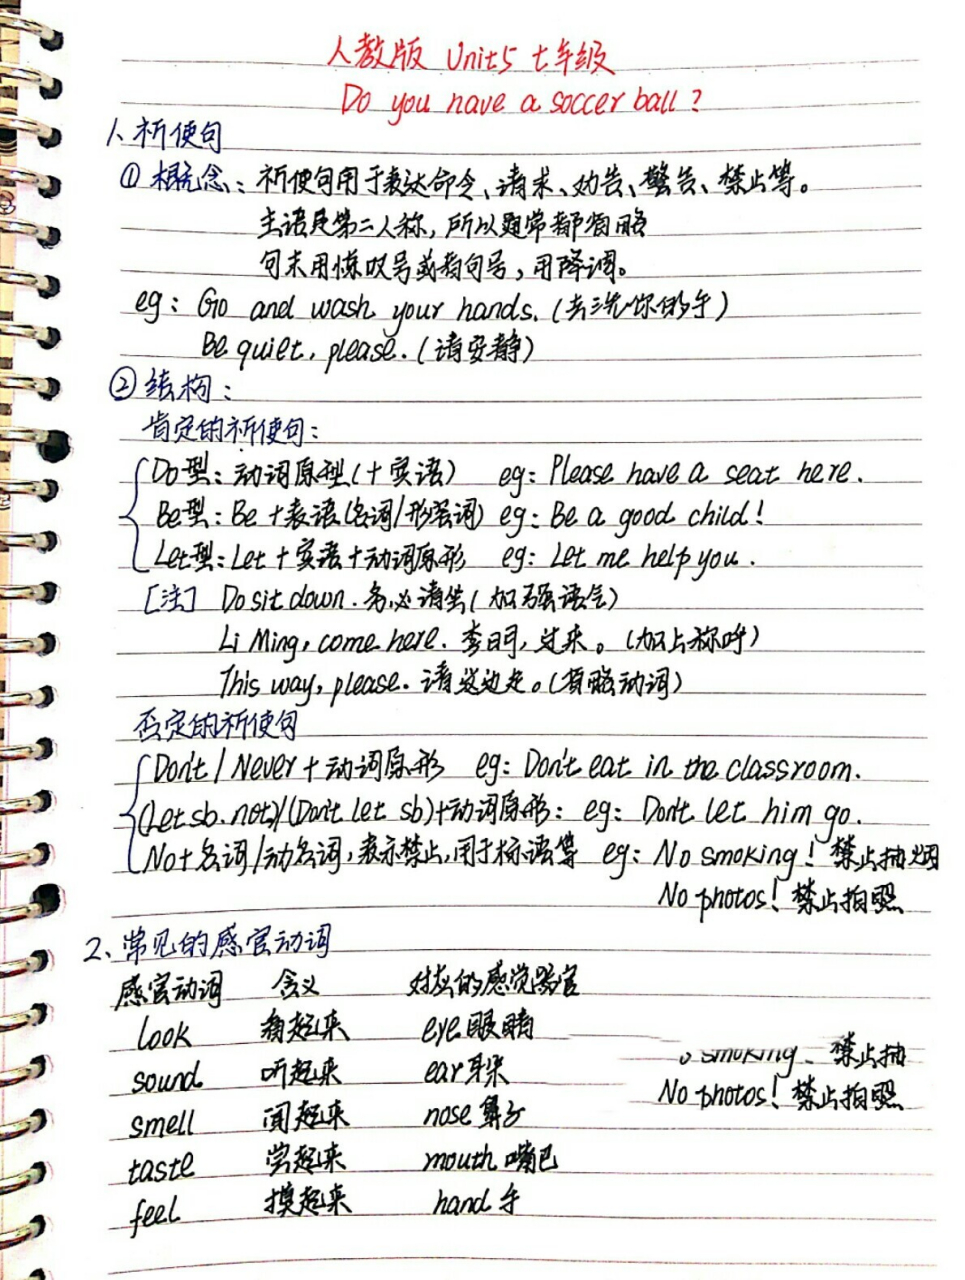 人教版 Unit5 七年级
Do you have a soccer ball?
1、祈使句
① 概念：祈使句用于表达命令、请求、劝告、警告、禁止等。
主语是第二人称，所以通常都省略
句末用惊叹号或者句号，用降调。
eg: Go and wash your hands. (去洗你的手)
Be quiet, please. (请安静)
② 结构：
肯定的祈使句：
Do型：动词原型(+宾语) eg: Please have a seat here.
Be型：Be+表语(名词/形容词) eg: Be a good child!
Let型：Let+宾语+动词原形 eg: Let me help you.
[注] Do sit down. 务必请坐(加强语气)
Li Ming, come here. 李明，过来。(加上称呼)
This way, please. 请这边走。(省略动词)
否定的祈使句
Don't / Never + 动词原形 eg: Don't eat in the classroom.
(Let sb. not)/(Don't let sb)+动词原形： eg: Don't let him go.
No+名词/动名词，表示禁止，用于标语等 eg: No smoking! 禁止抽烟
No photos! 禁止拍照
2、常见的感官动词
感官动词 含义 对应的感觉器官
look 看起来 eye 眼睛
smoking 禁止抽
sound 听起来 ear 耳朵
No photos! 禁止拍照
smell 闻起来 nose 鼻子
taste 尝起来 mouth 嘴巴
feel 摸起来 hand 手